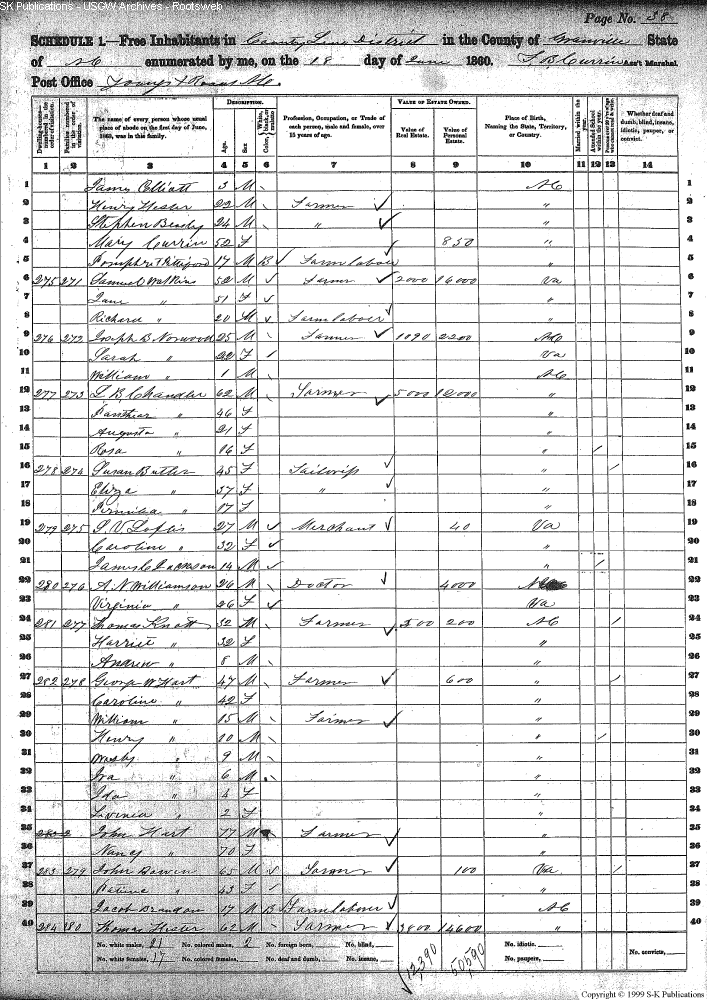 SK Publications - USGW Archives - Rootsweb
Page No. 38
SCHEDULE 1.—Free Inhabitants in County Line District in the County of Granville State
of NC enumerated by me, on the 18 day of June 1860. Currin Ass't Marshal.
Post Office
Dwelling-houses numbered in the order of visitation.
Families numbered in the order of visitation.
The name of every person whose usual place of abode on the first day of June, 1860, was in this family.
DESCRIPTION.
Age.
Sex.
Color, White, black, or mulatto.
Profession, Occupation, or Trade of each person, male and female, over 15 years of age.
VALUE OF ESTATE OWNED.
Value of Real Estate.
Value of Personal Estate.
Place of Birth, Naming the State, Territory, or Country.
Married within the year.
Attended School within the year.
Whether deaf and dumb, blind, insane, idiotic, pauper, or convict.
1 2 3 4 5 6 7 8 9 10 11 12 13 14
1 James Elliott 3 M NC 1
2 Henry Hester 22 M Farmer " 2
3 Stephen Beasley 24 M " " 3
4 Mary Currin 52 F 850 " 4
5 Pettiford 17 M B Farm labour " 5
6 275 271 Samuel Watkins 52 M Farmer 2000 16000 Va 6
7 Jane " 51 F " 7
8 Richard " 20 M Farm laborer " 8
9 276 272 Joseph B Norwood 25 M Farmer 1090 2200 NC 9
10 Sarah " 22 F Va 10
11 William " 1 M NC 11
12 277 273 L B Chandler 62 M Farmer 5000 12000 " 12
13 " 46 F " 13
14 Augusta " 21 F " 14
15 Rosa " 16 F " 15
16 278 274 Susan Butler 45 F " 16
17 Eliza " 37 F " " 17
18 " 17 F " 18
19 279 275 Loftis 27 M Merchant 40 Va 19
20 Caroline " 32 F " 20
21 James C Jackson 14 M " 21
22 280 276 A. N Williamson 26 M Doctor 4000 22
23 Virginia " 26 F Va 23
24 281 277 Thomas Knott 32 M Farmer 500 200 NC 24
25 Harriet " 32 F " 25
26 Andrew " 8 M " 26
27 282 278 George W Hart 47 M Farmer 600 " 27
28 Caroline " 42 F " 28
29 William " 15 M Farmer " 29
30 Henry " 10 M " 30
31 " 9 M " 31
32 Ira " 6 M " 32
33 Ida " 4 F " 33
34 Livinia " 2 F " 34
35 John Hart 77 M Farmer " 35
36 Nancy " 70 F " 36
37 283 279 John 65 M Farmer 100 Va 37
38 " 43 F " 38
39 Jacob Brandon 17 M B Farm labour NC 39
40 284 280 Thomas Hester 62 M Farmer 3800 14600 " 40
No. white males, 21 No. colored males, 2 No. foreign born, No. blind, No. idiotic, No. convicts,
No. white females, 17 No. colored females, No. deaf and dumb, No. insane, 12390 50590 No. paupers,
Copyright © 1999 S-K Publications